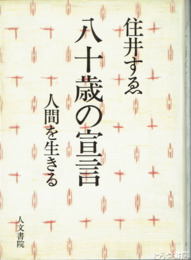 住井すゑ
八十歳の宣言
人間を生きる
人文書院